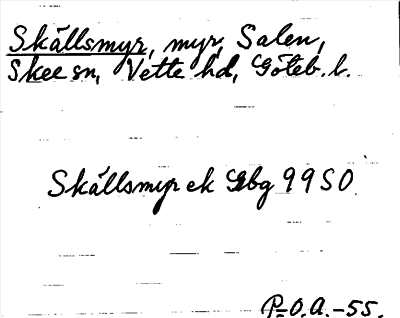 Skällsmyr, myr, Salen,
Skee sn, Vette hd, Göteb. l.
Skällsmyr ek Gbg 99 SO
P-O.A. -55.